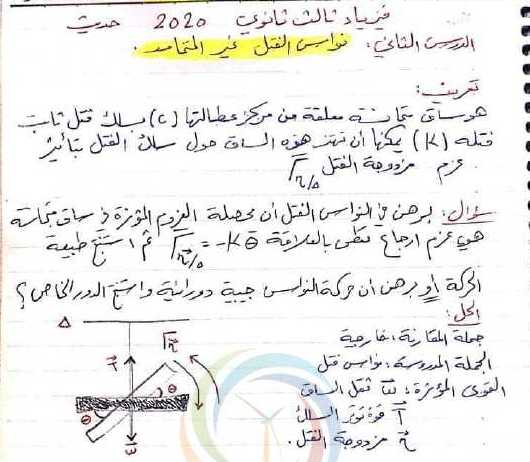 فيزياء ثالث ثانوي 2020 حديث
الدرس الثاني: نواس الفتل غير المتخامد.
تعريف:
هو ساق متجانسة معلقة من مركز عطالتها (c) بسلك فتل ثابت
فتله (k) يمكنها أن تهتز هذه الساق حول سلك الفتل بتأثير
عزم مزدوجة الفتل Γη/Δ
سؤال: برهن في النواس الفتل أن محصلة العزوم المؤثرة في ساق متجانسة
هي عزم ارجاع تعطى بالعلاقة Γη/Δ = -kθ ثم استنتج طبيعة
الحركة أو برهن أن حركة النواس جيبية دورانية واستنتج الدور الخاص؟
الحل:
جملة المقارنة: خارجية
الجملة المدروسة: نواس فتل
القوى المؤثرة: W ثقل الساق
T قوة توتر السلك
η مزدوجة الفتل.
Δ
T
Γη
θ
θ
W